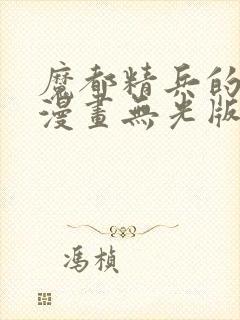 魔都精兵的
漫畫無光版
馮楨